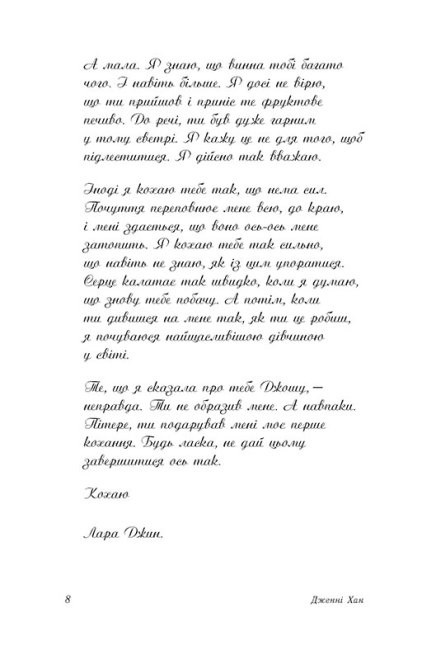 А мала. Я знаю, що винна тобі багато
чого. І навіть більше. Я досі не вірю,
що ти прийшов і приніс те фруктове
печиво. До речі, ти був дуже гарним
у тому светрі. Я кажу це не для того, щоб
підлеститися. Я дійсно так вважаю.
Іноді я кохаю тебе так, що нема сил.
Почуття переповнює мене всю, до краю,
і мені здається, що воно ось-ось мене
затопить. Я кохаю тебе так сильно,
що навіть не знаю, як із цим упоратися.
Серце калатає так швидко, коли я думаю,
що знову тебе побачу. А потім, коли
ти дивишся на мене так, як ти це робиш,
я почуваюся найщасливішою дівчиною
у світі.
Те, що я сказала про тебе Джошу, —
неправда. Ти не образив мене. А навпаки.
Пітере, ти подарував мені моє перше
кохання. Будь ласка, не дай цьому
завершитися ось так.
Кохаю
Лара Джин.
8 Дженні Хан